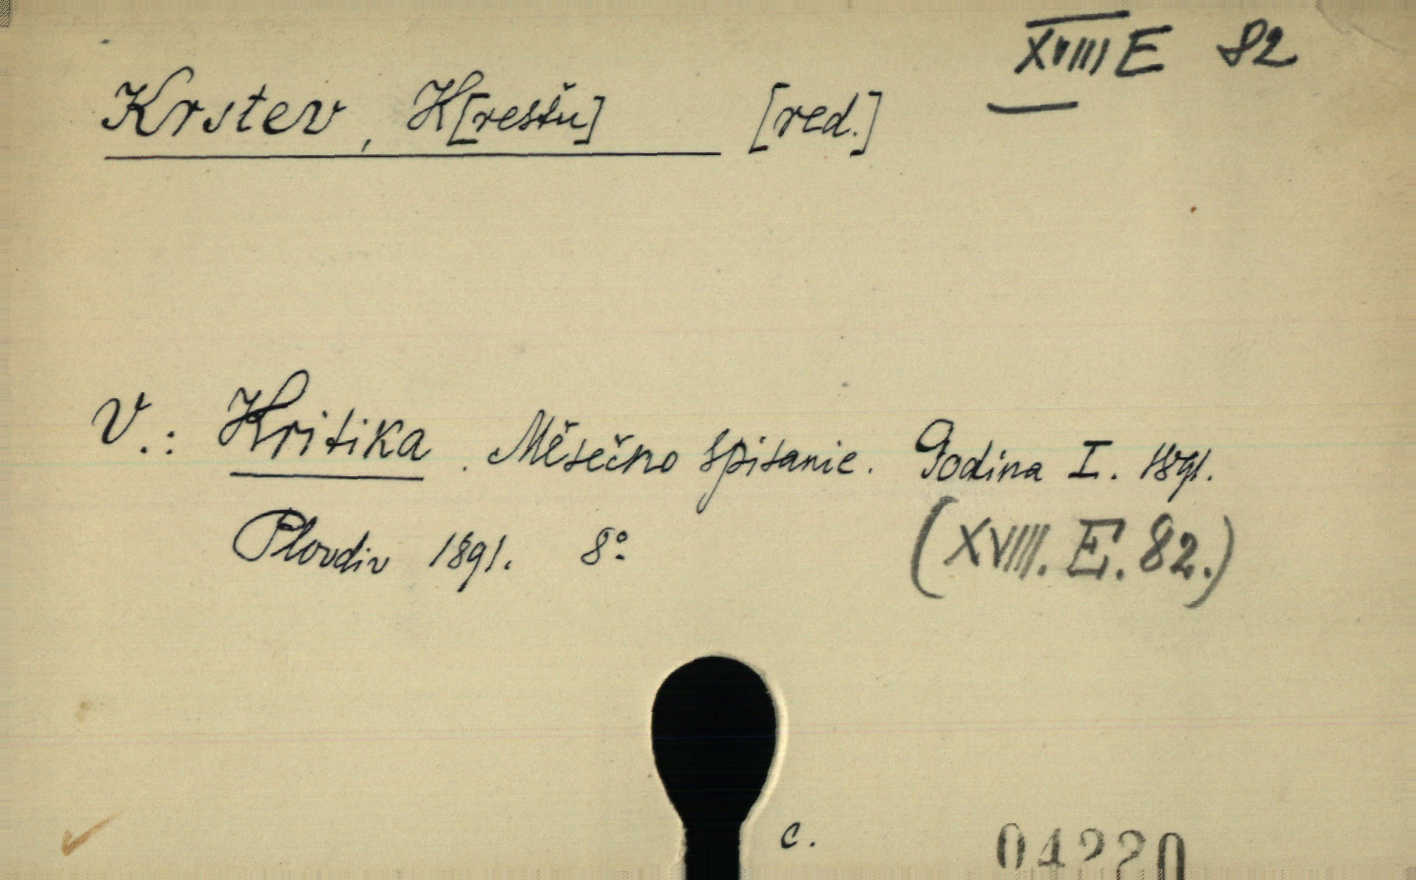 XVIII E 82
Krstev, K[restu] [red.]
V.: Kritika. Měsečno spisanie. Godina I. 1891.
Plovdiv 1891. 8°.
(XVIII. E. 82.)
c.
04220